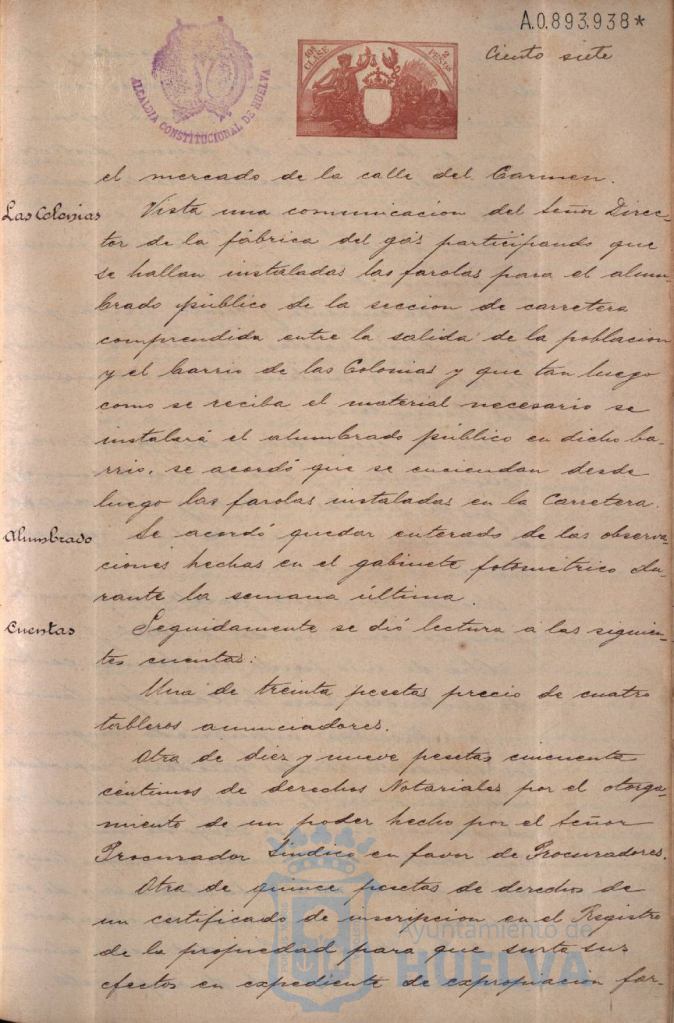 A.0.893.938*
Ciento siete
10ª CLASE
2 PESETAS
ALCALDIA CONSTITUCIONAL DE HUELVA
el mercado de la calle del Carmen.
Las Colonias
Vista una comunicacion del Señor Direc-
tor de la fábrica del gas participando que
se hallan instaladas las farolas para el alum-
brado público de la seccion de carretera
comprendida entre la salida de la poblacion
y el barrio de las Colonias y que tan luego
como se reciba el material necesario se
instalará el alumbrado público en dicho ba-
rrio, se acordó que se enciendan desde
luego las farolas instaladas en la Carretera.
Alumbrado
Se acordó quedar enterado de las observa-
ciones hechas en el gabinete fotométrico du-
rante la semana última.
Cuentas
Seguidamente se dió lectura á las siguien-
tes cuentas:
Una de treinta pesetas precio de cuatro
tableros anunciadores.
Otra de diez y nueve pesetas cincuenta
céntimos de derechos Notariales por el otorga-
miento de un poder hecho por el Señor
Procurador Síndico en favor de Procuradores.
Otra de quince pesetas de derechos de
un certificado de inscripcion en el Registro
de la propiedad para que surta sus
efectos en expediente de expropiacion for-
Ayuntamiento de
HUELVA